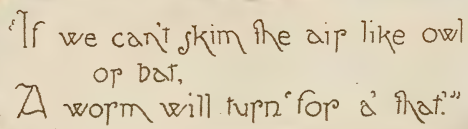 “If we can't skim the air like owl
or bat,
A worm will turn ‘for a' that.’”